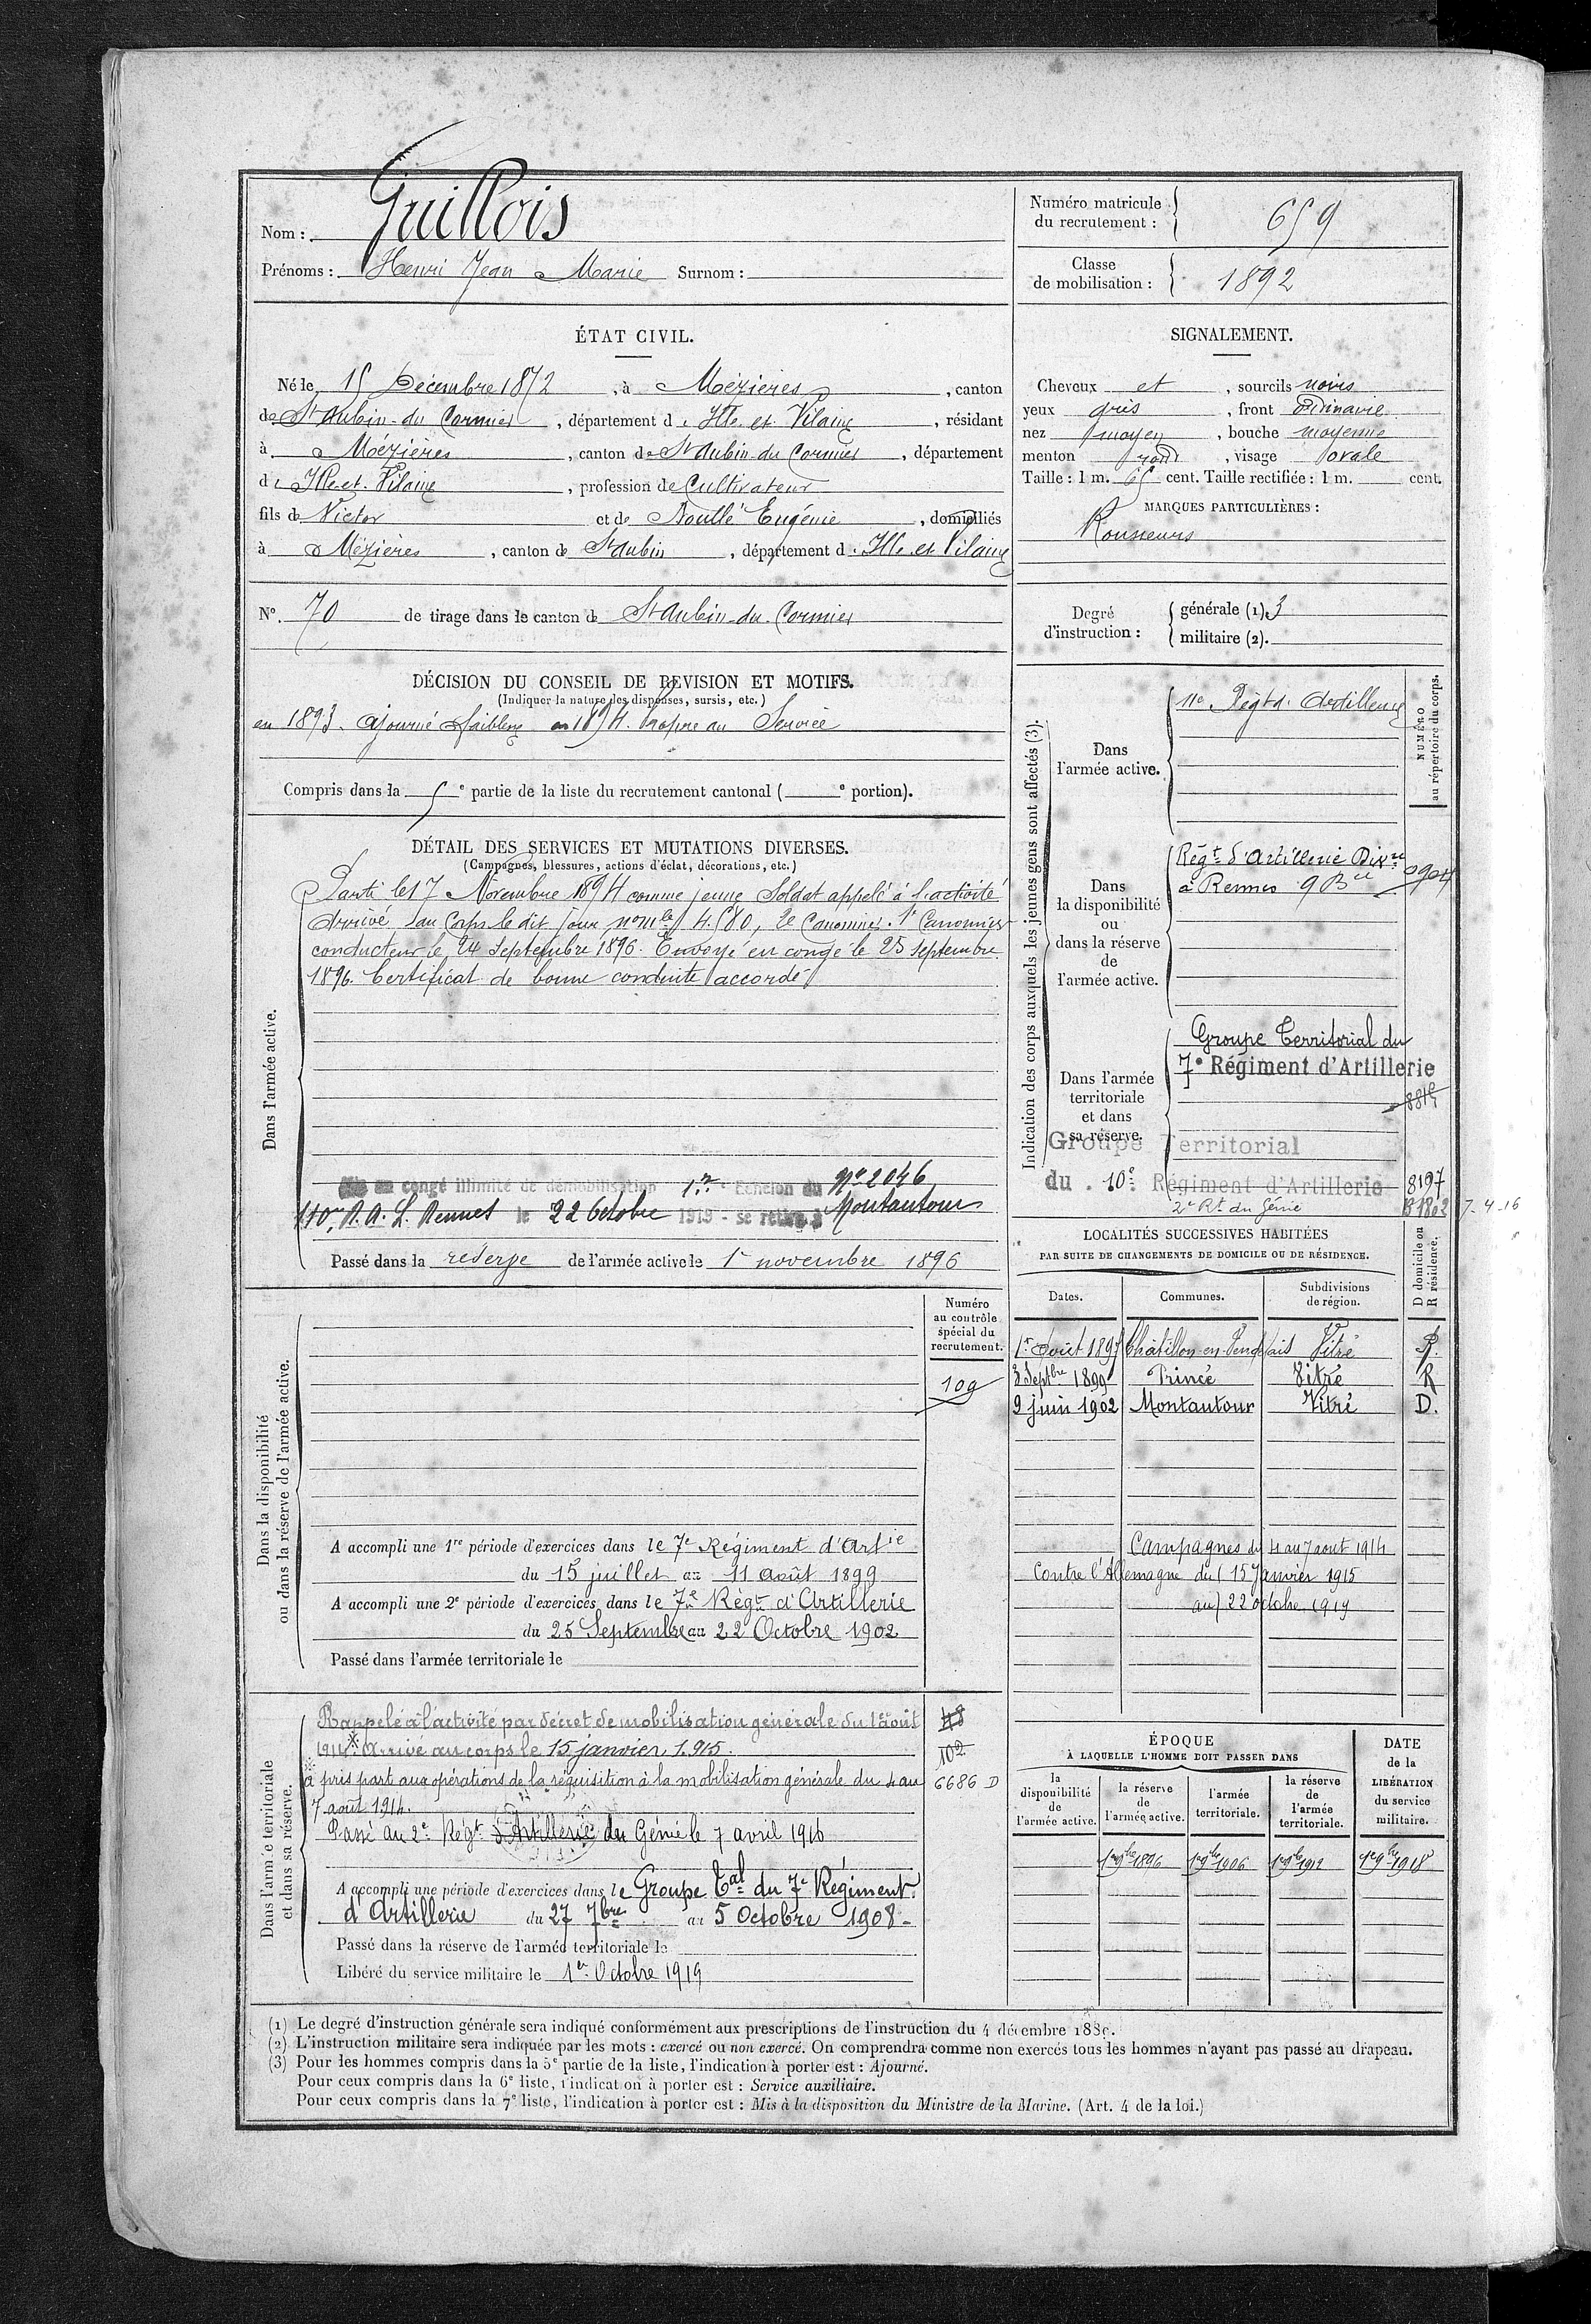 Nom : Guillois
Prénoms : Henri Jean Marie Surnom :
Numéro matricule du recrutement : 659
Classe de mobilisation : 1892
ÉTAT CIVIL.
Né le 15 Décembre 1872, à Mézières, canton
de St Aubin-du-Cormier, département d. Ille-et-Vilaine, résidant
à Mézières, canton de St Aubin-du-Cormier, département
d. Ille-et-Vilaine, profession de Cultivateur
fils de Victor et de Noullé Eugénie, domiciliés
à Mézières, canton de St Aubin, département d. Ille et Vilaine
N° 70 de tirage dans le canton de St Aubin-du-Cormier
SIGNALEMENT.
Cheveux et, sourcils noirs
yeux gris, front ordinaire
nez moyen, bouche moyenne
menton rond, visage ovale
Taille : 1 m. 65 cent. Taille rectifiée : 1 m. cent.
MARQUES PARTICULIÈRES :
Rousseurs
Degré d'instruction : générale (1). 3
militaire (2).
DÉCISION DU CONSEIL DE REVISION ET MOTIFS.
(Indiquer la nature des dispenses, sursis, etc.)
en 1893. ajourné faiblesse en 1894. Propre au Service
Compris dans la 5e partie de la liste du recrutement cantonal ( e portion).
DÉTAIL DES SERVICES ET MUTATIONS DIVERSES.
(Campagnes, blessures, actions d'éclat, décorations, etc.)
Dans l'armée active.
Parti le 17 Novembre 1894 comme jeune Soldat appelé à l'activité
Arrivé au Corps le dit jour n° mle 4.580, 2e Canonnier. 1r Canonnier
conducteur le 24 Septembre 1896. Envoyé en congé le 25 Septembre
1896. Certificat de bonne conduite accordé
en congé illimité de démobilisation 1er Echelon du No 2046
110e R.A.L. Rennes le 22 Octobre 1919 - se retire à Montautour
Passé dans la réserve de l'armée active le 1r novembre 1896
Indication des corps auxquels les jeunes gens sont affectés (3).
NUMÉRO au répertoire du corps.
Dans l'armée active.
11e Régt d'Artillerie
Dans la disponibilité ou dans la réserve de l'armée active.
Régt d'Artillerie Divre
à Rennes 9 Bie
Dans l'armée territoriale et dans sa réserve.
Groupe Territorial du
7e Régiment d'Artillerie
Groupe Territorial
du 10e Régiment d'Artillerie 8197
2e Rt du Génie B 1802 7-4-16
LOCALITÉS SUCCESSIVES HABITÉES
PAR SUITE DE CHANGEMENTS DE DOMICILE OU DE RÉSIDENCE.
Dates. Communes. Subdivisions de région. D domicile ou R résidence.
1r Août 1897 Châtillon-en-Vendelais Vitré R.
8 Septbre 1899 Princé Vitré R
9 juin 1902 Montautour Vitré D.
Campagnes du 4 au 7 aout 1914
Contre l'Allemagne du 15 Janvier 1915
au 22 octobre 1919
Dans la disponibilité ou dans la réserve de l'armée active.
Numéro au contrôle spécial du recrutement.
109
A accompli une 1re période d'exercices dans le 7e Régiment d'Artie
du 15 juillet au 11 août 1899
A accompli une 2e période d'exercices dans le 7e Régt d'Artillerie
du 25 Septembre au 22 Octobre 1902
Passé dans l'armée territoriale le
Dans l'armée territoriale et dans sa réserve.
Rappelé à l'activité par décret de mobilisation générale du 1er août
1914. Arrivé au corps le 15 janvier 1915.
102
a pris part aux opérations de la réquisition à la mobilisation générale du 4 au
6686 D
7 août 1914.
Passé au 2e Régt d'Artillerie du Génie le 7 avril 1916
A accompli une période d'exercices dans le Groupe Tal du 7e Régiment
d'Artillerie du 27 7bre au 5 Octobre 1908
Passé dans la réserve de l'armée territoriale le
Libéré du service militaire le 1er Octobre 1919
ÉPOQUE
À LAQUELLE L'HOMME DOIT PASSER DANS
la disponibilité de l'armée active.
la réserve de l'armée active.
l'armée territoriale.
la réserve de l'armée territoriale.
DATE de la LIBÉRATION du service militaire.
1er 9bre 1896 1er 9bre 1906 1er 9bre 1912 1er 9bre 1918
(1) Le degré d'instruction générale sera indiqué conformément aux prescriptions de l'instruction du 4 décembre 1889.
(2) L'instruction militaire sera indiquée par les mots : exercé ou non exercé. On comprendra comme non exercés tous les hommes n'ayant pas passé au drapeau.
(3) Pour les hommes compris dans la 5e partie de la liste, l'indication à porter est : Ajourné.
Pour ceux compris dans la 6e liste, l'indication à porter est : Service auxiliaire.
Pour ceux compris dans la 7e liste, l'indication à porter est : Mis à la disposition du Ministre de la Marine. (Art. 4 de la loi.)